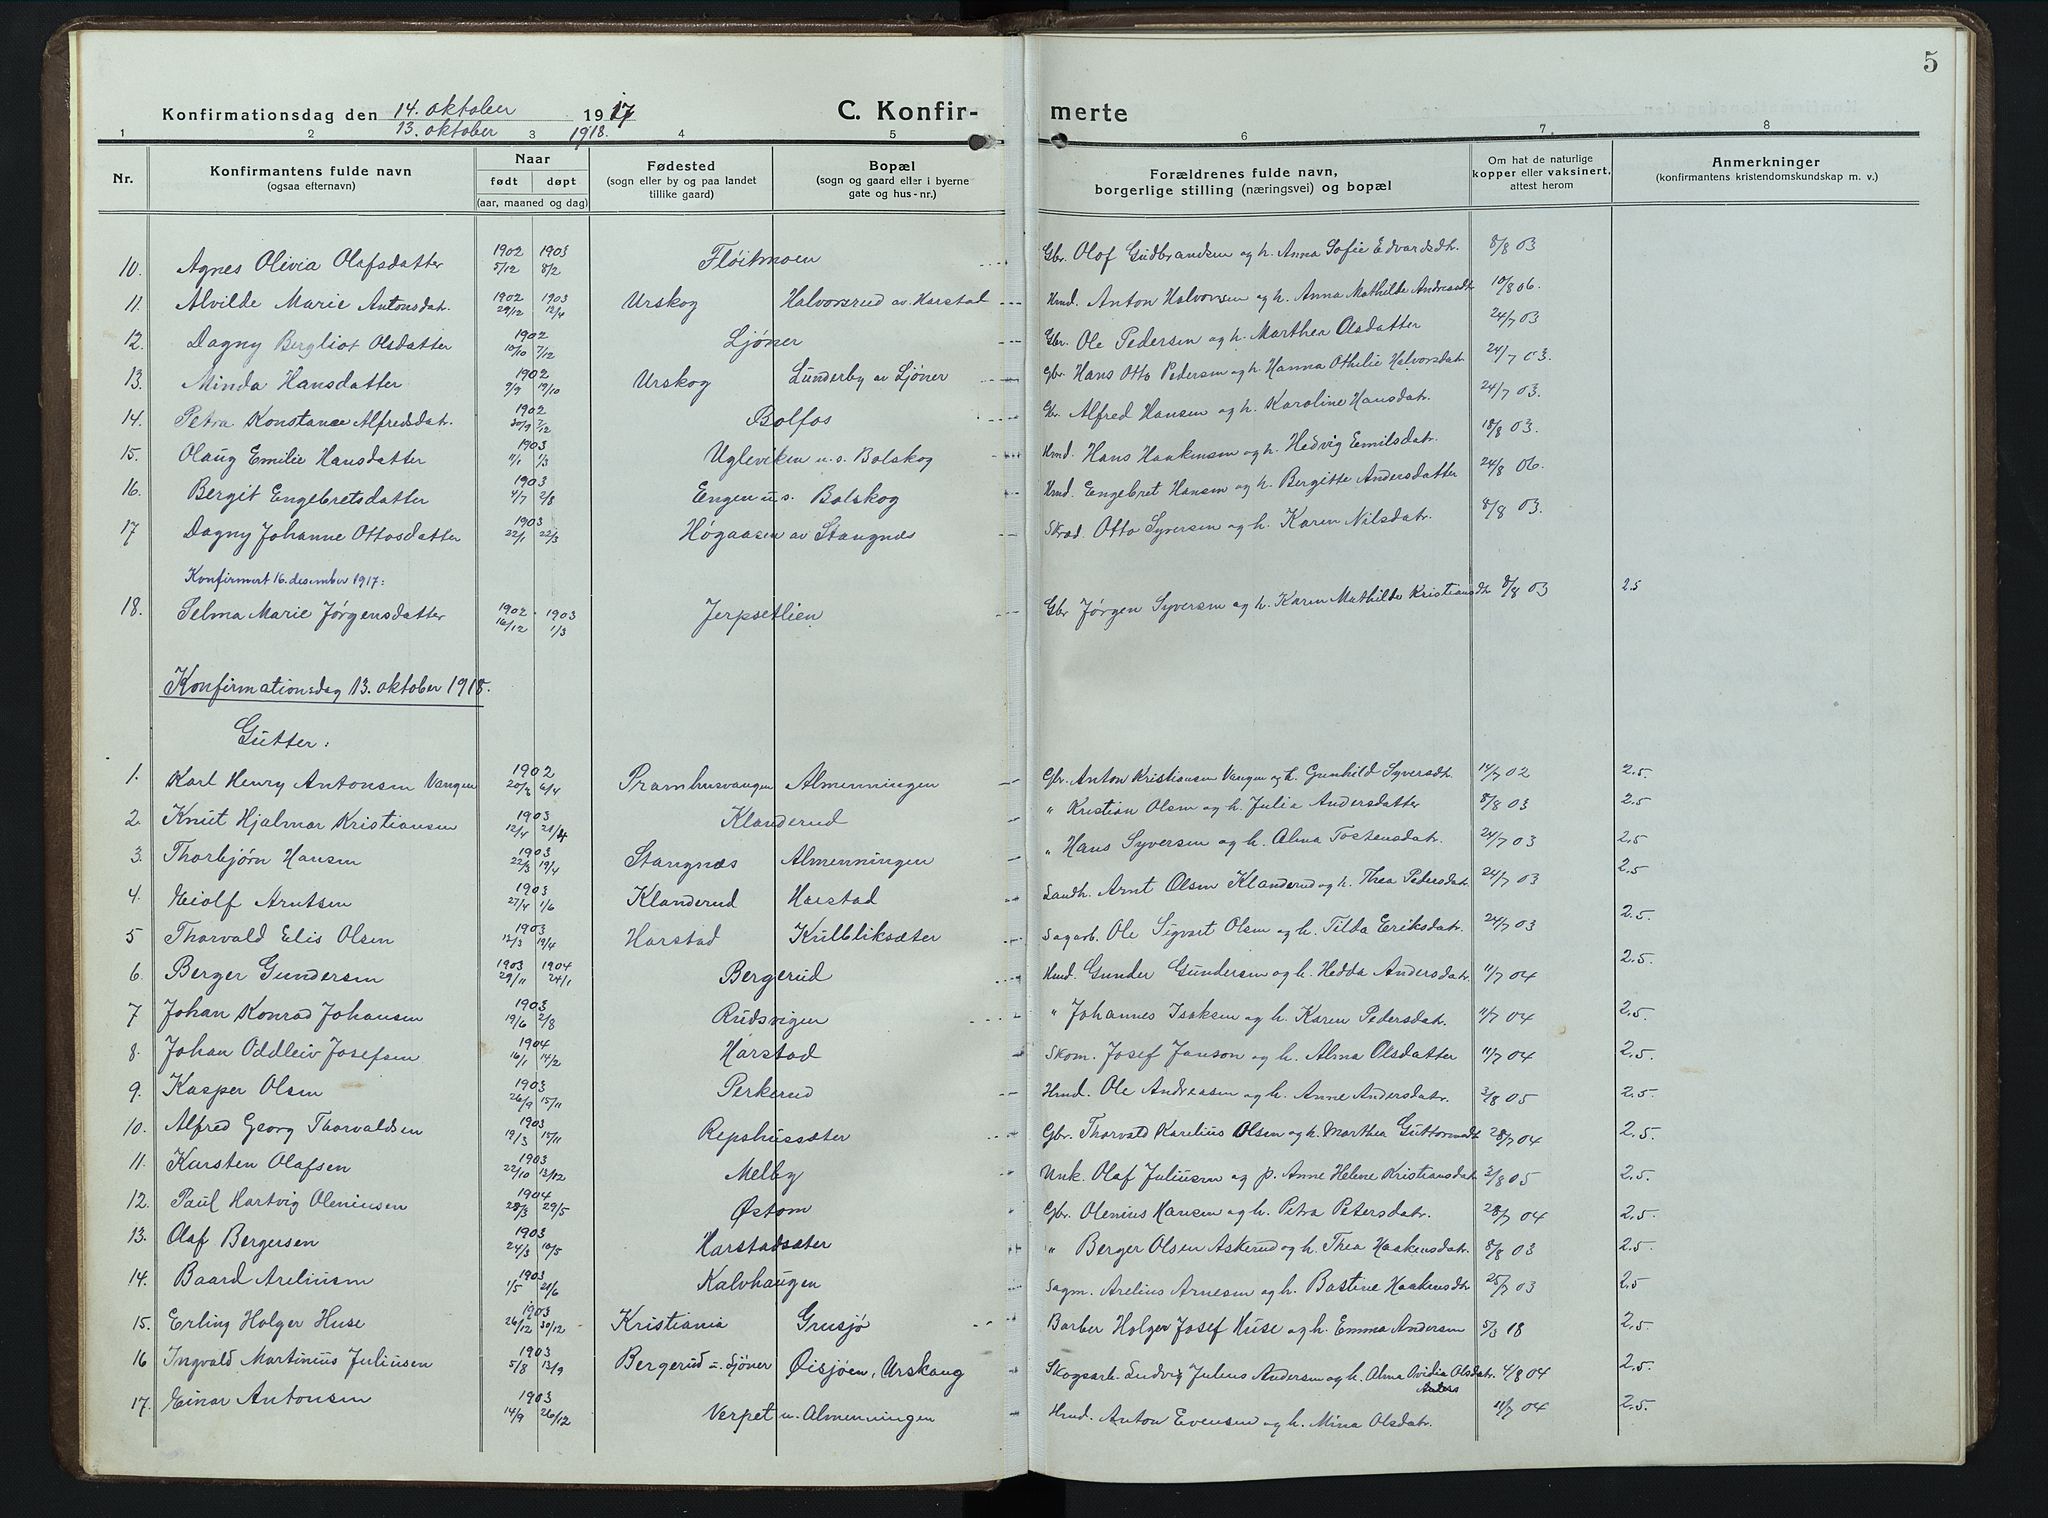 5
Konfirmationsdag den 14. oktober 1917 C. Konfir- merte
13. oktober 1918.
1 2 3 4 5 6 7 8
Nr. Konfirmantens fulde navn (ogsaa efternavn) Naar født døpt (aar, maaned og dag) Fødested (sogn eller by og paa landet tillike gaard) Bopæl (sogn og gaard eller i byerne gate og hus-nr.) Forældrenes fulde navn, borgerlige stilling (næringsvei) og bopæl Om hat de naturlige kopper eller vaksinert, attest herom Anmerkninger (konfirmantens kristendomskundskap m. v.)
10. Agnes Olivia Olafsdatter 1902 5/12 1903 8/2 Fløitmoen Gbr. Olof Gudbrandsen og h. Anna Sofie Edvardsdtr. 8/8 03
11. Alvilde Marie Antonsdatr. 1902 29/12 1903 12/4 Urskog Halvorsrud av Harstad Hmd. Anton Halvorsen og h. Anna Mathilde Andreasdtr 10/8 06.
12. Dagny Bergliot Olsdatter 1902 10/10 7/12 Ljøner Gbr. Ole Pedersen og h. Marthea Olsdatter 24/7 03
13. Minda Hansdatter 1902 9/9 19/10 Urskog Lunderby av Ljøner Gbr. Hans Otto Pedersen og h. Hanna Othilie Halvorsdatr. 24/7 03.
14. Petra Konstance Alfredsdatr. 1902 30/9 7/12 Bolfos Gbr. Alfred Hansen og h. Karoline Hansdatr. 24/7 03.
15. Olaug Emilie Hansdatter 1903 11/1 1/3 Ugleviken u. s. Bolskog Hmd. Hans Haakensen og h. Hedvig Emilsdatr. 18/8 03.
16. Bergit Engebretsdatter 1903 4/7 2/8 Engen u. s. Bolskog Hmd. Engebret Hansen og h. Bergitte Andersdatter 24/8 06.
17 Dagny Johanne Ottosdatter 1903 22/1 22/3 Høgaasen av Stangnæs Skrad. Otto Syversen og h. Karen Nilsdatr. 8/8 03.
Konfirmert 16. desember 1917:
18. Selma Marie Jørgensdatter 1902 16/12 1903 1/3 Jerpsetlien Gbr Jørgen Syversen og h. Karen Mathilde Kristiansdtr 8/8 03 2.5
Konfirmationsdag 13. oktober 1918.
Gutter:
1. Karl Henry Antonsen Vangen 1902 20/2 6/4 Pramhusvangen Almenningen Gbr. Anton Kristiansen Vangen og h. Gunhild Syversdtr. 14/7 02 2.5.
2. Knut Hjalmar Kristiansen 1903 12/4 21/4 Klanderud " Kristian Olsen og h. Julia Andersdatter 8/8 03 2.5
3. Thorbjørn Hansen 1903 22/3 19/4 Stangnæs Almenningen " Hans Syversen og h. Alma Tostensdatr. 24/7 03 2.5
4. Eiolf Arntsen 1903 27/4 1/6 Klanderud Harstad Landh. Arnt Olsen Klanderud og h. Thea Pedersdatr. 24/7 03 2.5
5 Thorvald Elis Olsen 1903 12/3 19/4 Harstad Kulbliksæter Sagarb. Ole Sigvart Olsen og h. Tilda Eriksdatr. 24/7 03 2.5.
6. Berger Gundersen 1903 29/11 1904 24/1 Bergerud Hmd. Gunder Gundersen og h. Hedda Andersdatr. 11/7 04 2.5.
7 Johan Konrad Johansen 1903 19/6 2/8 Rudsvigen " Johannes Isaksen og h. Karen Pedersdatr. 11/7 04 2.5.
8. Johan Oddleiv Josefsen 1904 16/1 14/2 Harstad Skom. Josef Janson og h. Alma Olsdatter 11/7 04 2.5.
9. Kasper Olsen 1903 26/9 15/11 Perkerud Hmd. Ole Andreasen og h. Anne Andersdatr. 3/8 05 2.5.
10. Alfred Georg Thorvaldsen 1903 19/3 15/11 Repshussæter Gbr. Thorvald Karelius Olsen og h. Marthea Guttormsdtr 28/7 04 2.5.
11. Karsten Olafsen 1903 22/10 13/12 Melby Unk. Olaf Juliusen og p. Anne Helene Kristiansdatr 3/8 05 2.5.
12. Paul Hartvig Oleniusen 1904 28/3 29/5 Østom Gbr. Olenius Hansen og h. Petra Petersdatr. 28/7 04 2.5.
13. Olaf Bergersen 1903 24/3 10/5 Harstadsæter " Berger Olsen Askerud og h. Thea Haakensdatr. 8/8 03 2.5.
14. Baard Areliusen 1903 1/5 21/6 Kalvhaugen Sagm. Arelius Arnesen og h. Bastine Haakensdtr 25/7 03 2.5
15. Erling Holger Huse 1903 26/12 30/12 Kristiania Grusjø Barber Holger Josef Huse og h. Emma Andersen 5/3 18 2.5.
16 Ingvald Martinius Juliusen 1903 5/8 13/9 Bergerud u. Ljøner Øisjøen, Urskoug Skogsarb. Ludvig Julius Andersen og h. Alma Ovidia Olsdatr. 4/8 04 2.5.
Anders
17. Einar Antonsen 1903 14/9 26/12 Verpet u. Almenningen Hmd. Anton Evensen og h. Mina Olsdatr. 11/7 04 2.5.